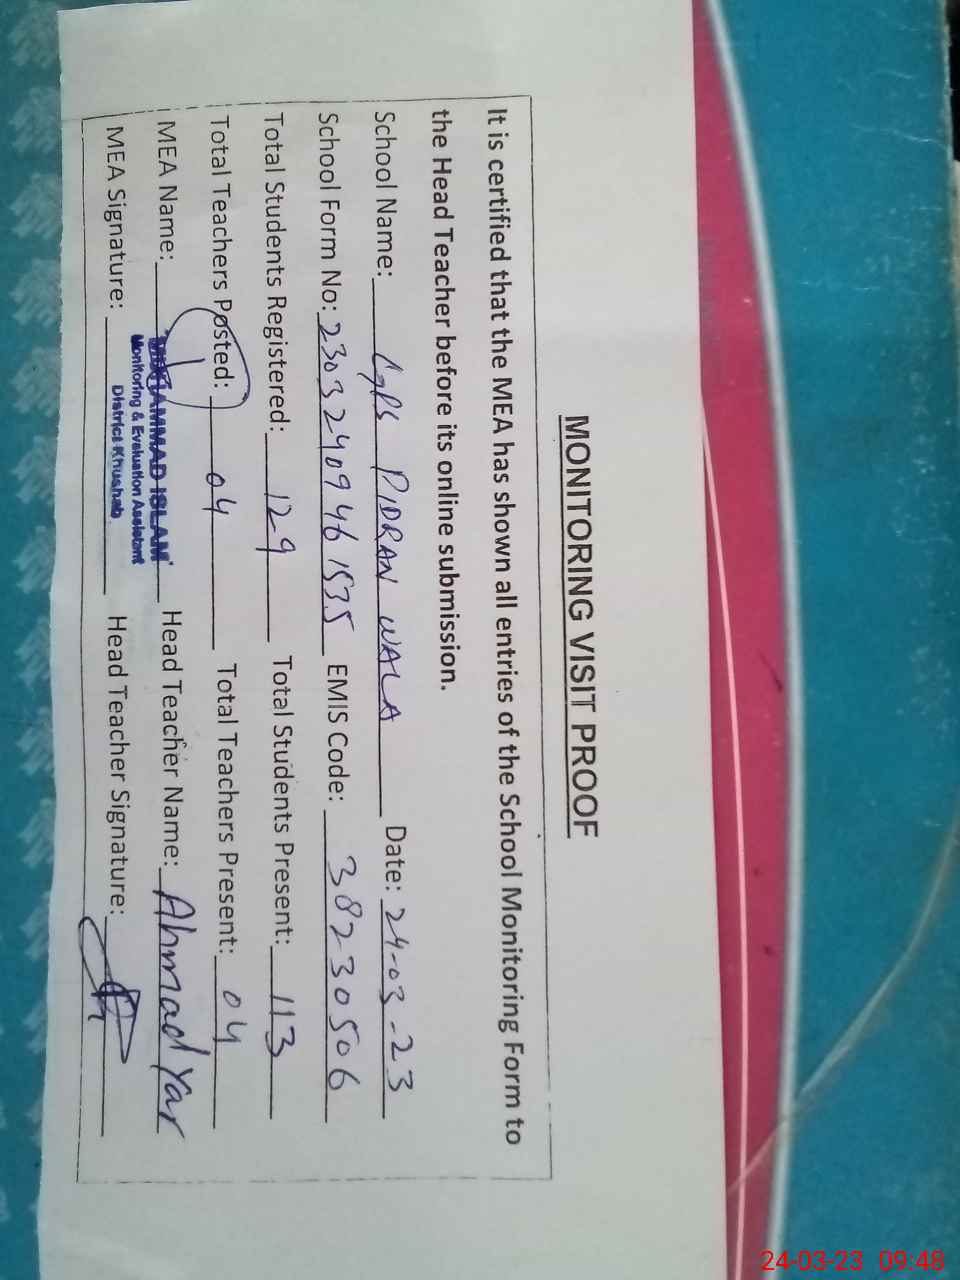 MONITORING VISIT PROOF
It is certified that the MEA has shown all entries of the School Monitoring Form to
the Head Teacher before its online submission.
School Name: GPS PIDRAN WALA Date: 24-03-23
School Form No: 23032409461535 EMIS Code: 38230506
Total Students Registered: 129 Total Students Present: 113
Total Teachers Posted: 04 Total Teachers Present: 04
MEA Name: MUHAMMAD ISLAM Head Teacher Name: Ahmad Yar
Monitoring & Evaluation Assistant
District Khushab
MEA Signature: Head Teacher Signature:
24-03-23 09:48